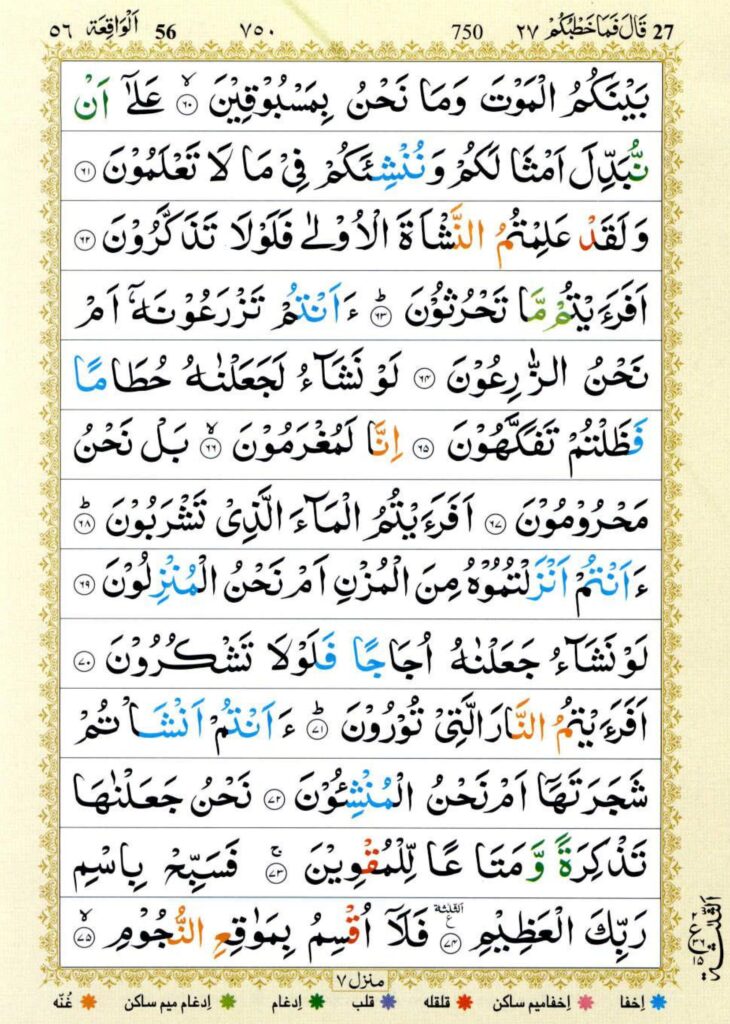 27 قَالَ فَمَا خَطْبُكُمْ ٢٧ 750 ٧٥٠ 56 اَلْوَاقِعَة ٥٦
بَيْنَكُمُ الْمَوْتَ وَمَا نَحْنُ بِمَسْبُوْقِيْنَ ۙ‏ ﴿۶۰﴾ عَلٰٓى اَنْ
نُّبَدِّلَ اَمْثَا لَكُمْ وَنُنْشِئَكُمْ فِىْ مَا لَا تَعْلَمُوْنَ ﴿۶۱﴾
وَلَقَدْ عَلِمْتُمُ النَّشْاَةَ الْاُوْلٰى فَلَوْلَا تَذَكَّرُوْنَ ﴿۶۲﴾
اَفَرَءَيْتُمْ مَّا تَحْرُثُوْنَ ؕ ﴿۶۳﴾ ءَاَنْتُمْ تَزْرَعُوْنَهٗۤ اَمْ
نَحْنُ الزّٰرِعُوْنَ ﴿۶۴﴾ لَوْ نَشَآءُ لَجَعَلْنٰهُ حُطَامًا
فَظَلْتُمْ تَفَكَّهُوْنَ ﴿۶۵﴾ اِنَّا لَمُغْرَمُوْنَ ۙ ﴿۶۶﴾ بَلْ نَحْنُ
مَحْرُوْمُوْنَ ﴿۶۷﴾ اَفَرَءَيْتُمُ الْمَآءَ الَّذِىْ تَشْرَبُوْنَ ؕ ﴿۶۸﴾
ءَاَنْتُمْ اَنْزَلْتُمُوْهُ مِنَ الْمُزْنِ اَمْ نَحْنُ الْمُنْزِلُوْنَ ﴿۶۹﴾
لَوْ نَشَآءُ جَعَلْنٰهُ اُجَاجًا فَلَوْلَا تَشْكُرُوْنَ ﴿۷۰﴾
اَفَرَءَيْتُمُ النَّارَ الَّتِىْ تُوْرُوْنَ ؕ ﴿۷۱﴾ ءَاَنْتُمْ اَنْشَاْتُمْ
شَجَرَتَهَاۤ اَمْ نَحْنُ الْمُنْشِئُوْنَ ﴿۷۲﴾ نَحْنُ جَعَلْنٰهَا
تَذْكِرَةً وَّمَتَاعًا لِّلْمُقْوِيْنَ ۚ ﴿۷۳﴾ فَسَبِّحْ بِاسْمِ
رَبِّكَ الْعَظِيْمِ ﴿۷۴﴾ الثلثة ع فَلَاۤ اُقْسِمُ بِمَوٰقِعِ النُّجُوْمِ ۙ ﴿۷۵﴾
منزل ٧
اِخفا اِخفامیم ساکن قلقله قلب اِدغام اِدغام میم ساکن غُنّه